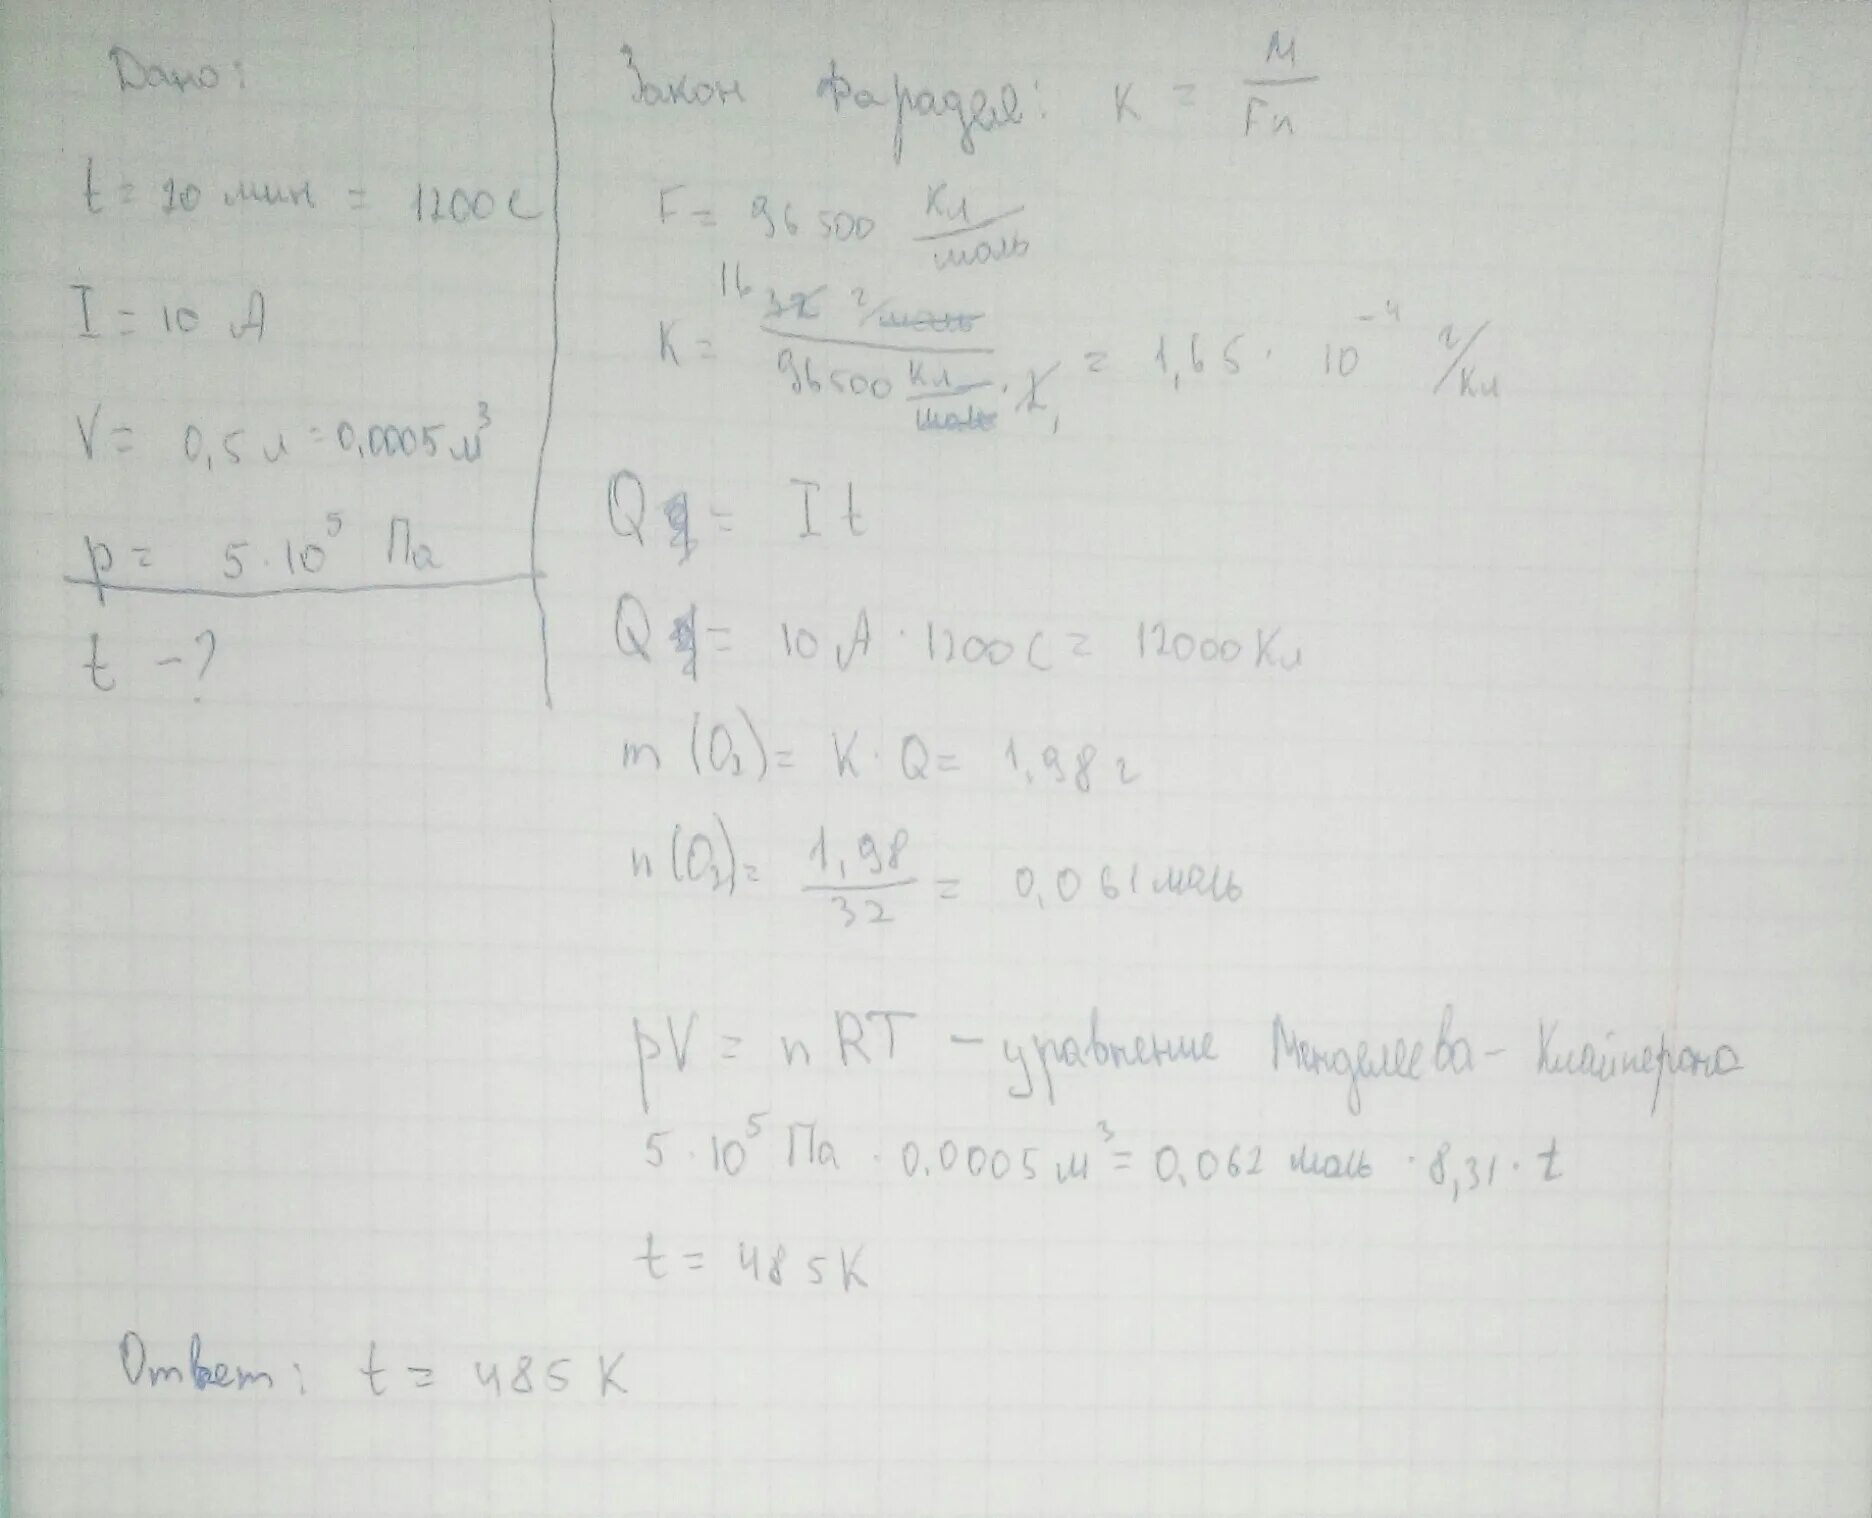 Дано:
t = 20 мин = 1200 с
I = 10 А
V = 0,5 л = 0,0005 м³
p = 5 · 10⁵ Па
t - ?
Закон Фарадея: K = M / Fn
F = 96 500 Кл/моль
K = 16 32 г/моль / 96500 Кл/моль · 2, = 1,65 · 10⁻⁴ г/Кл
Q = It
Q = 10 А · 1200 с = 12000 Кл
m (O₂) = K · Q = 1,98 г
n (O₂) = 1,98 / 32 = 0,061 моль
pV = nRT - уравнение Менделеева - Клайперона
5 · 10⁵ Па · 0,0005 м³ = 0,062 моль · 8,31 · t
t = 485 К
Ответ: t = 485 К